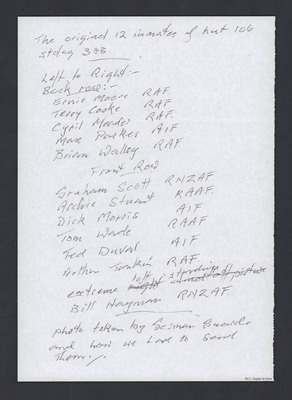 The original 12 inmates of hut 106
stalag 383
Left to Right:-
Back row:-
Ernie Moore RAF
Terry Cooke RAF
Cyril Meades RAF.
Max Parkes AIF
Brian Walley RAF.
Front Row
Graham Scott RNZAF
Archie Stuart RAAF.
Dick Morris AIF
Tom Wade RAAF
Ted Duval AIF
Arthur RAF.
extreme left standing
Bill Hayman RNZAF
photo taken by German Guards
and how we have to send
them.
IBCC Digital Archive